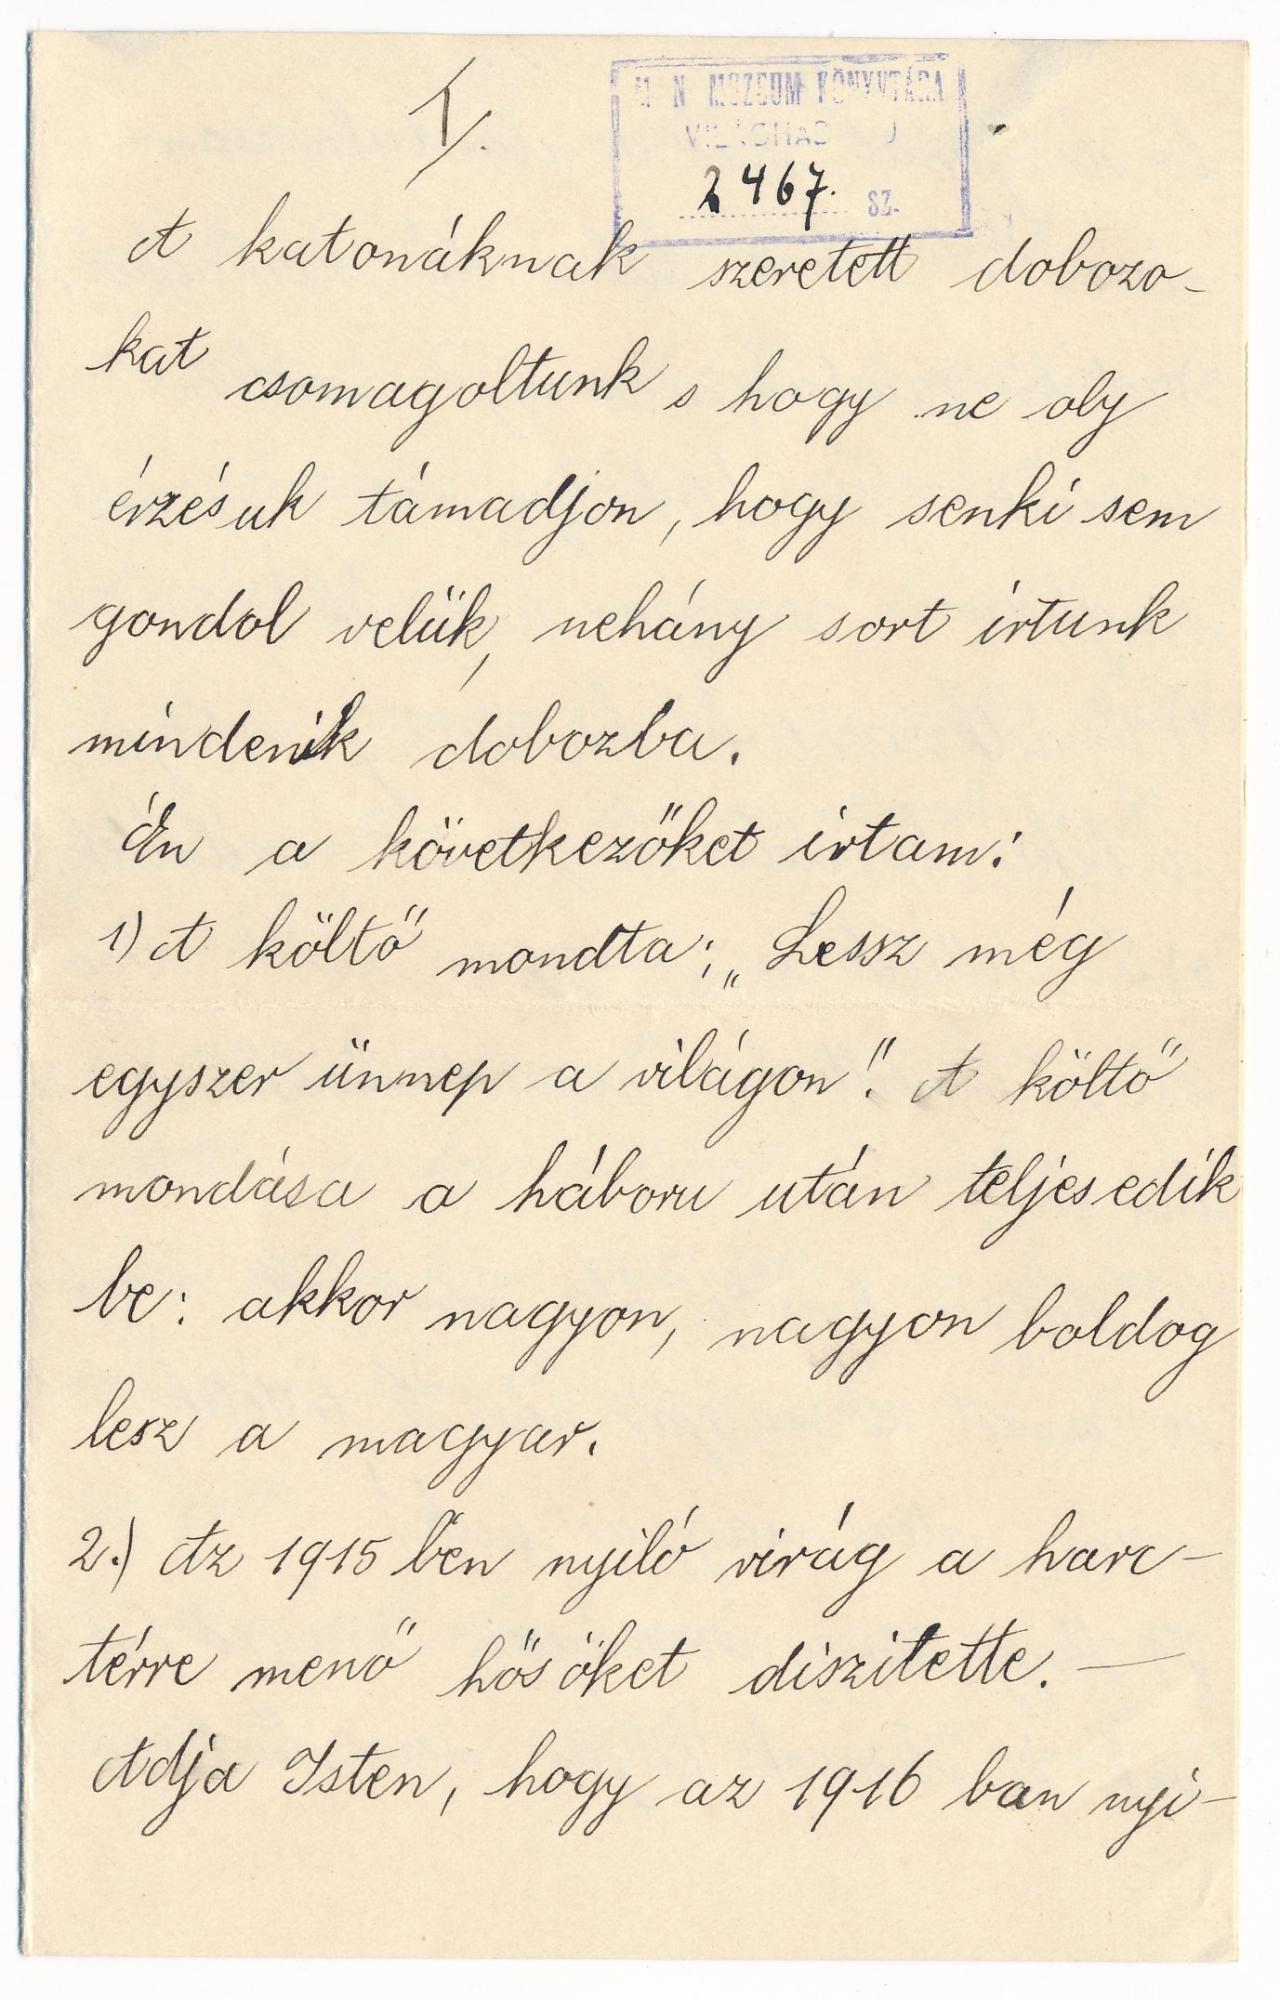 1/.
M N MUZEUM KÖNYVTÁRA
2467. SZ.
A katonáknak szeretett dobozo-
kat csomagoltunk s hogy ne oly
érzésuk támadjon, hogy senki sem
gondol velük, nehány sort irtunk
mindenik dobozba.
Én a következőket irtam:
1) A költő mondta; „Lessz még
egyszer ünnep a világon". A költő
mondása a háboru után teljesedik
be: akkor nagyon, nagyon boldog
lesz a magyar.
2.) Az 1915 ben nyiló virág a harc-
térre menő hősöket diszitette. —
Adja Isten, hogy az 1916 ban nyi-